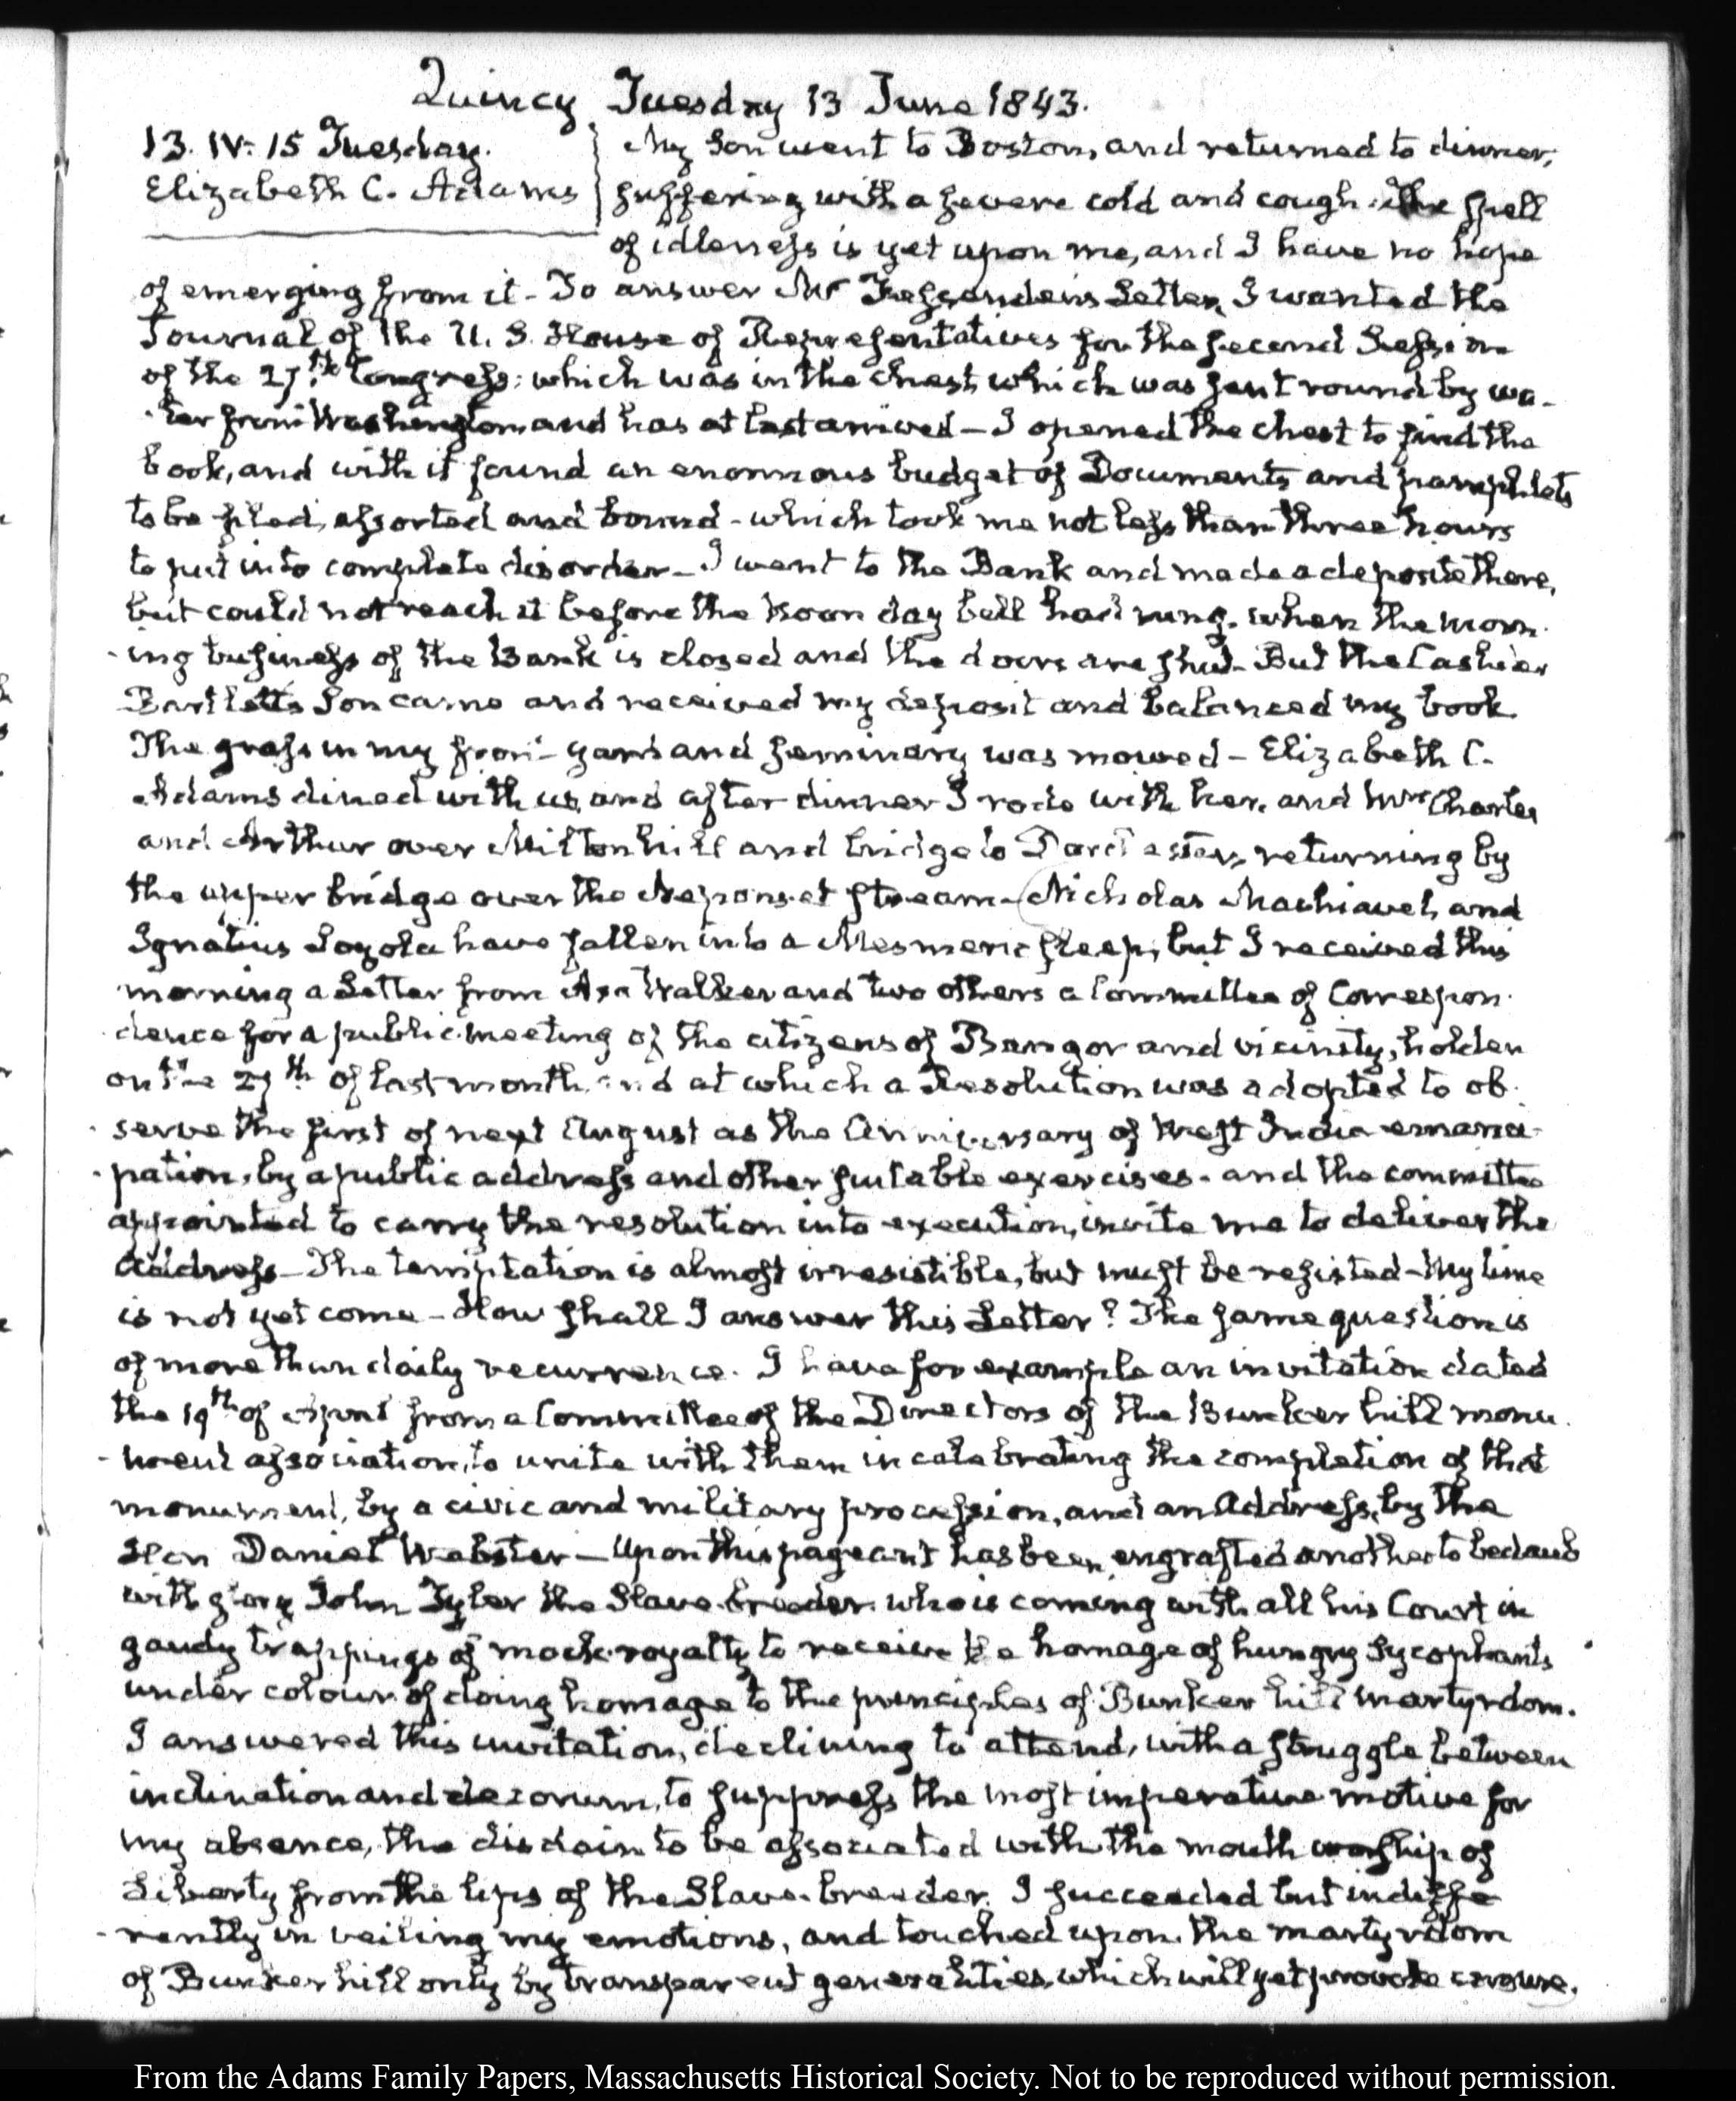 Quincy Tuesday 13 June 1843.
13. IV: 15 Tuesday.
Elizabeth C. Adams
My Son went to Boston, and returned to dinner,
suffering with a severe cold and cough. The spell
of idleness is yet upon me, and I have no hope
of emerging from it - To answer Mr Fessenden's Letter, I wanted the
Journal of the U. S. House of Representatives for the second Session
of the 27th Congress: which was in the chest, which was sent round by wa-
-ter from Washington and has at last arrived - I opened the chest to find the
book, and with it found an enormous budget of Documents and pamphlets
to be filed, assorted and bound - which took me not less than three hours
to put into complete disorder - I went to the Bank and made a deposite there,
but could not reach it before the Noon day bell had rung, when the morn-
-ing business of the Bank is closed and the doors are shut - But the Cashier
Bartlett's Son came and received my deposit and balanced my book
The grass in my front-yard and seminary was mowed - Elizabeth C.
Adams dined with us, and after dinner I rode with her, and Mrs Charles
and Arthur over Milton hill and bridge to Dorchester, returning by
the upper bridge over the Neponset stream - Nicholas Machiavel, and
Ignatius Loyola have fallen into a Mesmeric sleep, but I received this
morning a Letter from Asa Walker and two others a Committee of Correspon-
-dence for a public meeting of the citizens of Bangor and vicinity, holden
on the 27th of last month, and at which a Resolution was adopted to ob-
-serve the first of next August as the Anniversary of West India emanci-
-pation, by a public address and other suitable exercises - and the committee
appointed to carry the resolution into execution, invite me to deliver the
Address - The temptation is almost irresistible, but must be resisted - My time
is not yet come - How shall I answer this Letter? The same question is
of more than daily recurrence. I have for example an invitation dated
the 19th of April from a Committee of the Directors of the Bunker hill monu-
-ment association, to unite with them in celebrating the completion of that
monument, by a civic and military procession, and an Address, by the
Hon Daniel Webster - Upon this pageant has been engrafted another to bedaub
with glory John Tyler the Slave-breeder, who is coming with all his Court in
gaudy trappings of mock-royalty to receive the homage of hungry Sycophants
under colour of doing homage to the principles of Bunker hill martyrdom.
I answered this invitation, declining to attend, with a struggle between
inclination and decorum, to suppress the most imperative motive for
my absence, the disdain to be associated with the mouth worship of
Liberty from the lips of the Slave-breeder. I succeeded but indiffe-
-rently in veiling my emotions, and touched upon the martyrdom
of Bunker hill only by transparent generalities, which will yet provoke censure.
From the Adams Family Papers, Massachusetts Historical Society. Not to be reproduced without permission.